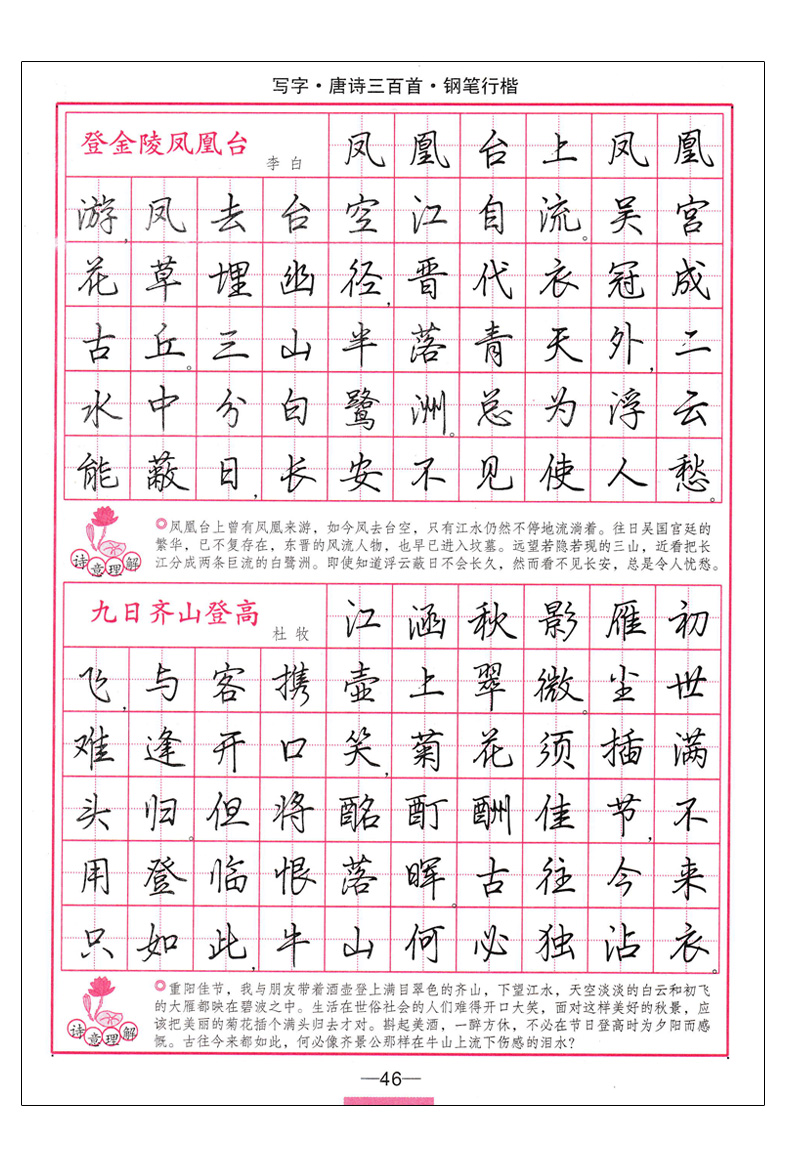 写字·唐诗三百首·钢笔行楷
登金陵凤凰台 李白 凤凰台上凤凰
游，凤去台空江自流。吴宫
花草埋幽径，晋代衣冠成
古丘。三山半落青天外，二
水中分白鹭洲。总为浮云
能蔽日，长安不见使人愁。
诗意理解
凤凰台上曾有凤凰来游，如今凤去台空，只有江水仍然不停地流淌着。往日吴国宫廷的
繁华，已不复存在，东晋的风流人物，也早已进入坟墓。远望若隐若现的三山，近看把长
江分成两条巨流的白鹭洲。即使知道浮云蔽日不会长久，然而看不见长安，总是令人忧愁。
九日齐山登高 杜牧 江涵秋影雁初
飞，与客携壶上翠微。尘世
难逢开口笑，菊花须插满
头归。但将酩酊酬佳节，不
用登临恨落晖。古往今来
只如此，牛山何必独沾衣。
诗意理解
重阳佳节，我与朋友带着酒壶登上满目翠色的齐山，下望江水，天空淡淡的白云和初飞
的大雁都映在碧波之中。生活在世俗社会的人们难得开口大笑，面对这样美好的秋景，应
该把美丽的菊花插个满头归去才对。斟起美酒，一醉方休，不必在节日登高时为夕阳而感
慨。古往今来都如此，何必像齐景公那样在牛山上流下伤感的泪水？
—46—